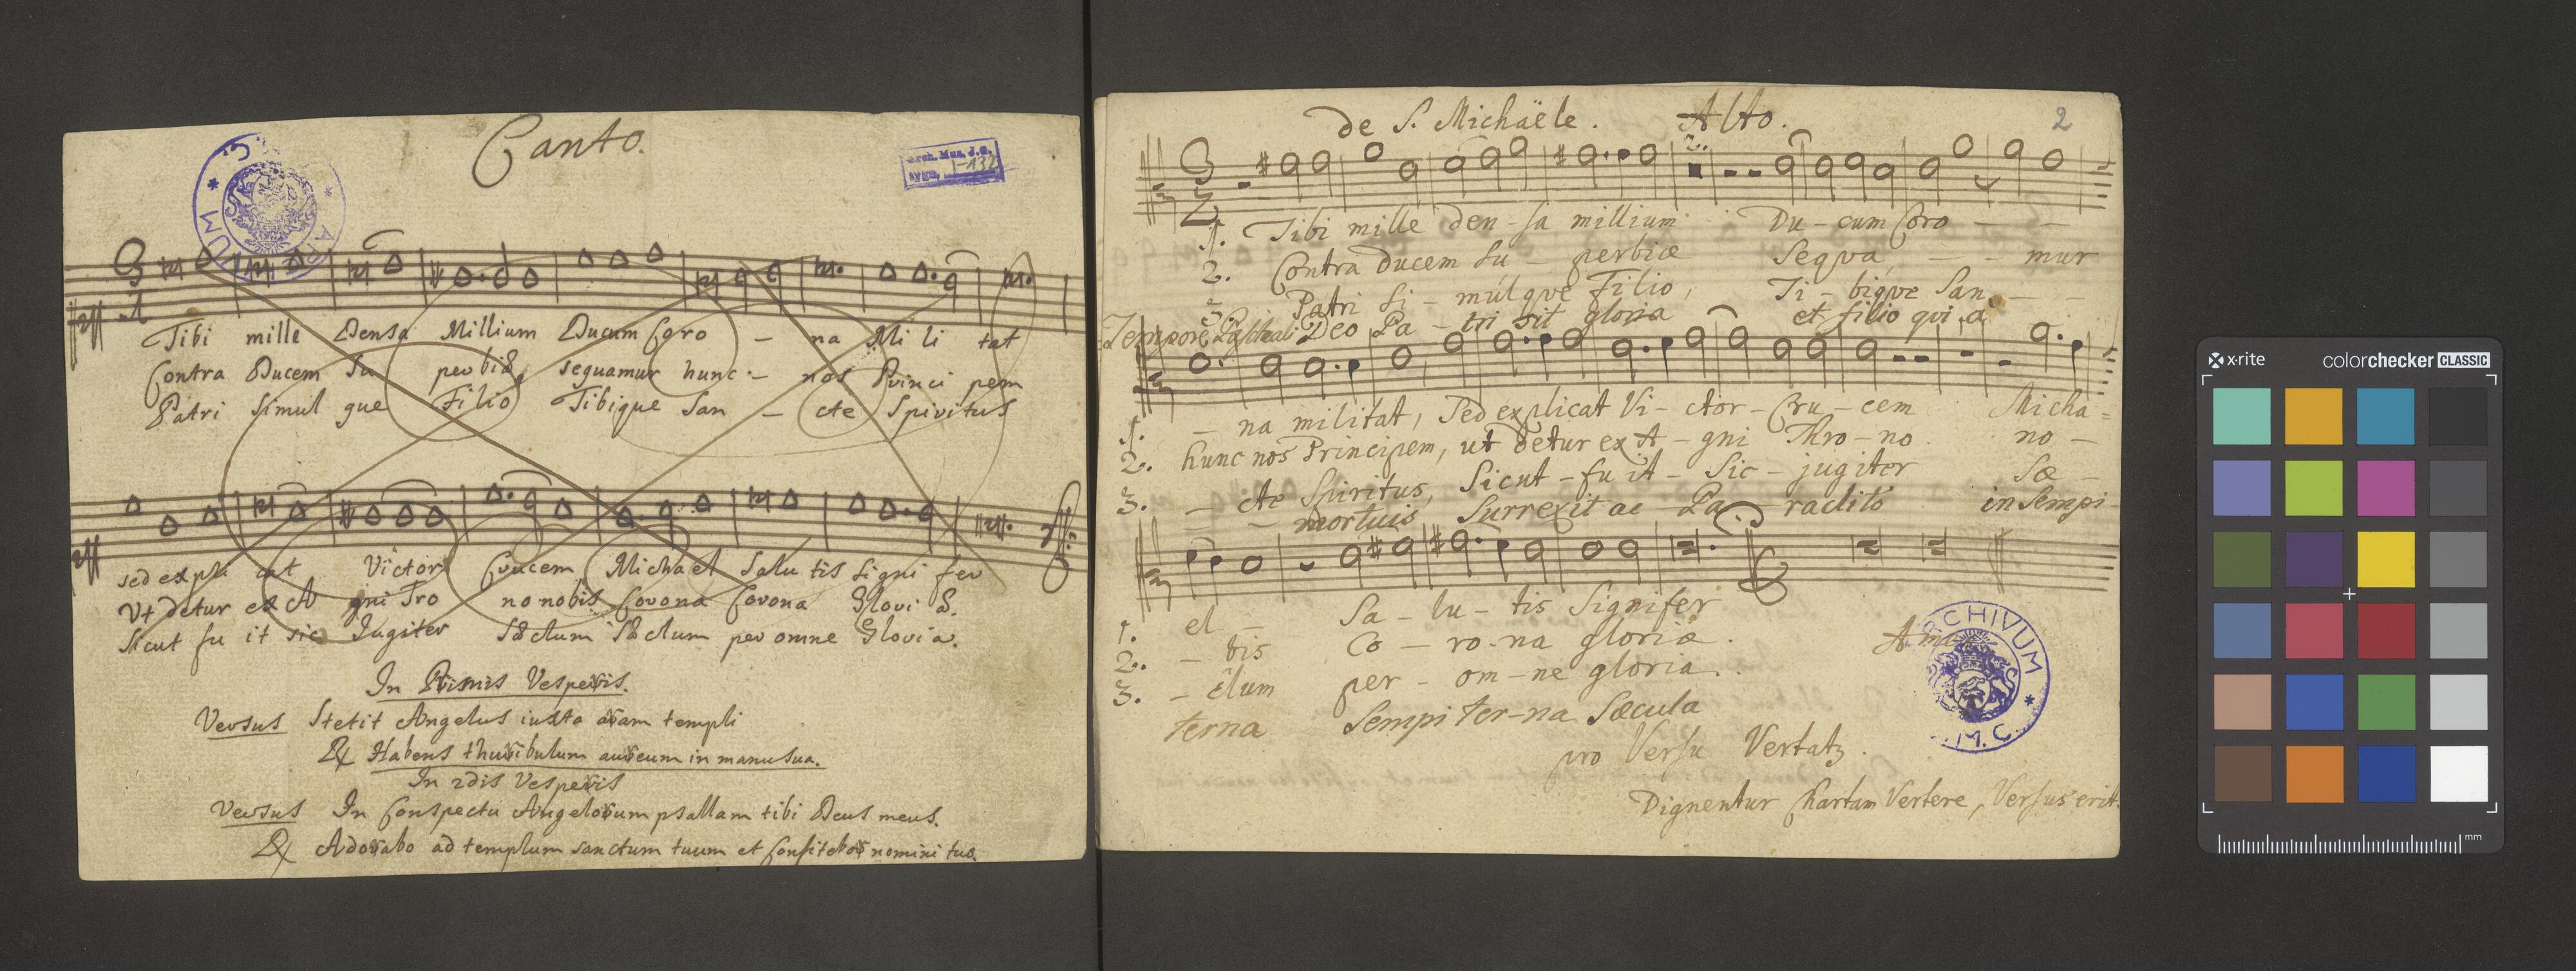 Canto.
Arch. Mus. J. G.
sygn. I-132
ARCHIVUM
Tibi mille Densa Millium Ducum Coro - na Mi li tat
Contra Ducem Su perbiæ sequamur hunc - nos Princi pem
Patri simul que Filio Tibique San - cte Spiritus
sed expli cat Victor Crucem Michael Salu tis signi fer
Ut detur ex A gni Tro no nobis Corona Corona Gloriæ.
Sicut fu it sic Jugiter Sæclum Sæclum per omne Gloria.
In Primis Vesperis.
Versus Stetit Angelus iuxta aram templi
℟ Habens thuribulum aureum in manu sua.
In 2dis Vesperis
Versus In Conspectu Angelorum psallam tibi Deus meus.
℟ Adorabo ad templum sanctum tuum et Confitebor nomini tuo.
de S. Michaële. Alto. 2
1. Tibi mille den - sa millium Du - cum Coro - -
2. Contra Ducem Su - perbiæ Sequa - - mur
3. Patri Si - mulque Filio, Ti - bique San - -
Tempore Paschali Deo Pa - tri sit gloria et filio qui a
1. - na militat, Sed explicat Vi - ctor - Cru - cem Micha =
2. hunc nos Principem, ut detur ex A - gni Thro - no no -
3. - cte Spiritus, Sicut - fu it - Sic - jugiter Sæ -
- mortuis Surrexit ac Pa raclito in Sempi -
1. el - Sa - lu - tis Signifer
2. - bis Co - ro - na gloriæ.
3. - clum per - om - ne gloria.
terna Sempiter - na Sæcula
ARCHIVUM
J. M. C.
pro Versu Vertatz.
Dignentur Chartam Vertere, Versus erit.
x-rite colorchecker CLASSIC
mm